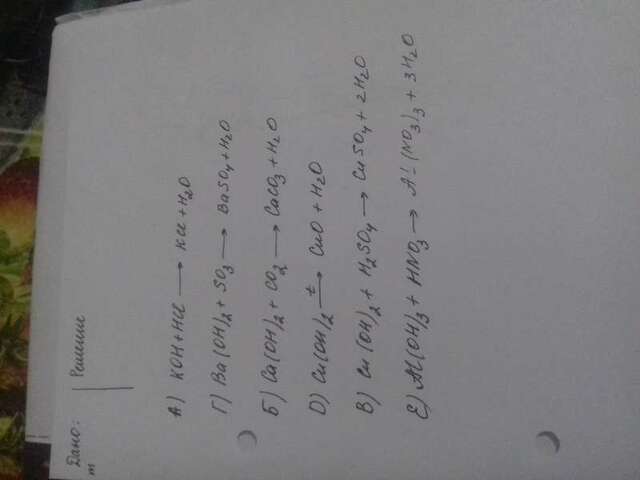 Дано:
m
Решение
А) KOH + HCl → KCl + H₂O
Г) Ba(OH)₂ + SO₃ → BaSO₄ + H₂O
Б) Ca(OH)₂ + CO₂ → CaCO₃ + H₂O
D) Cu(OH)₂ →ᵗ CuO + H₂O
В) Cu(OH)₂ + H₂SO₄ → CuSO₄ + 2H₂O
Е) Al(OH)₃ + HNO₃ → Al(NO₃)₃ + 3H₂O